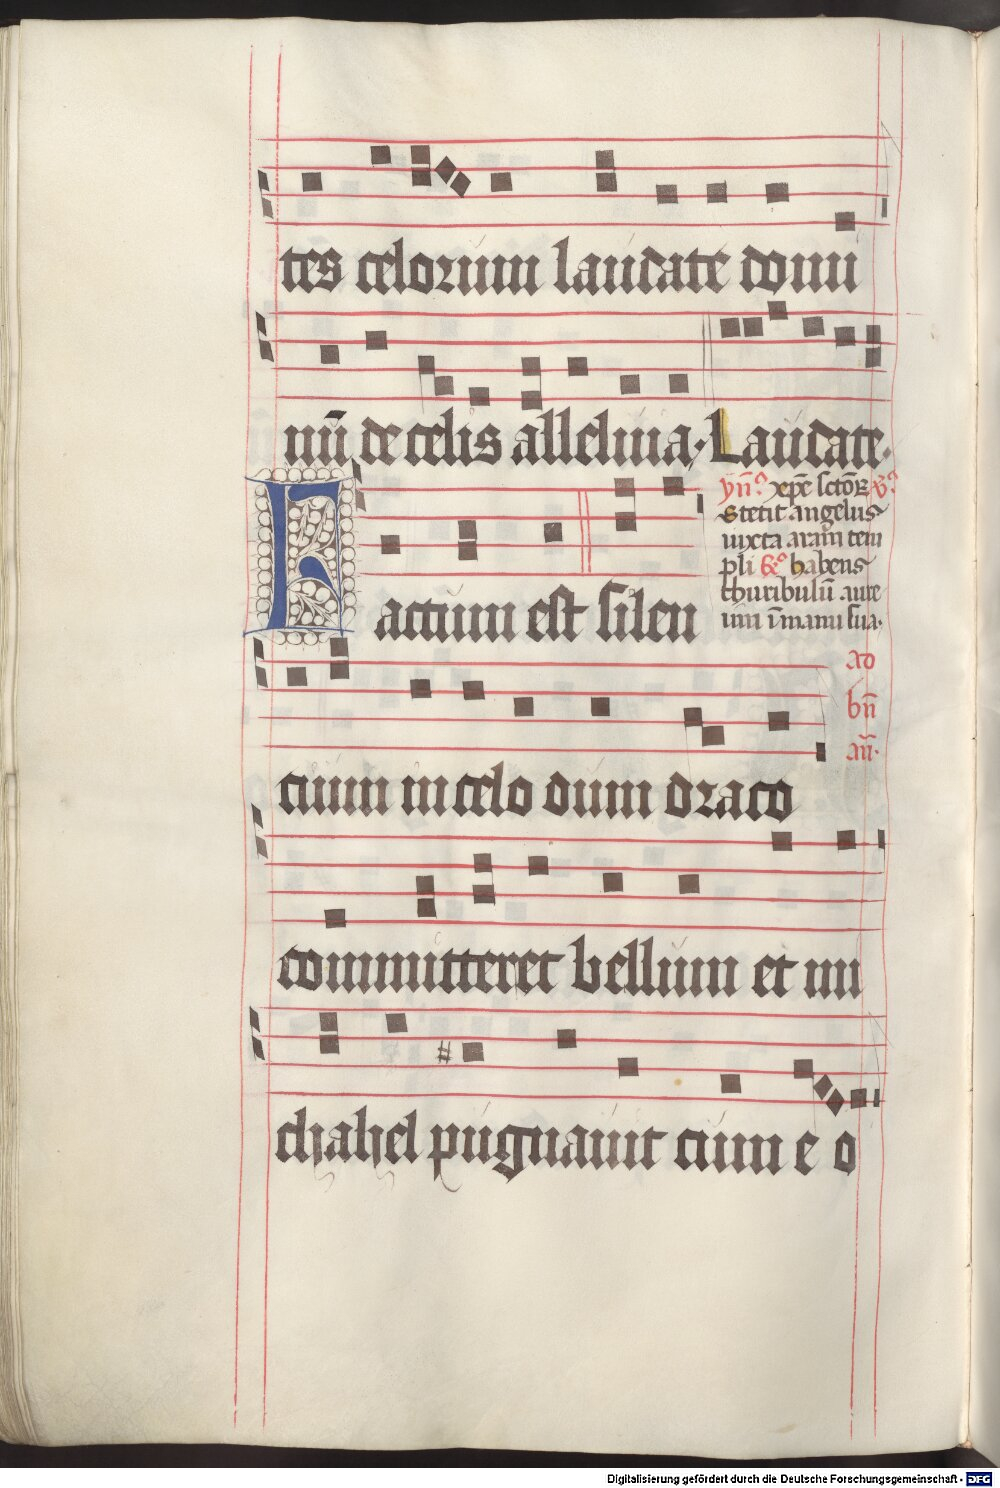 tes celorum laudate domi
nū de celis alleluia. Laudate.
ynᵃ xp̄e sctōꝝ vᵃ
Stetit angelus
iuxta aram tem
pli ꝶᵃ habens
thuribulū aure
um ī manu sua.
Factum est silen
ad
bn̄
an̄.
cium in celo dum draco
committeret bellum et mi
chahel pugnauit cum e o
Digitalisierung gefördert durch die Deutsche Forschungsgemeinschaft - DFG